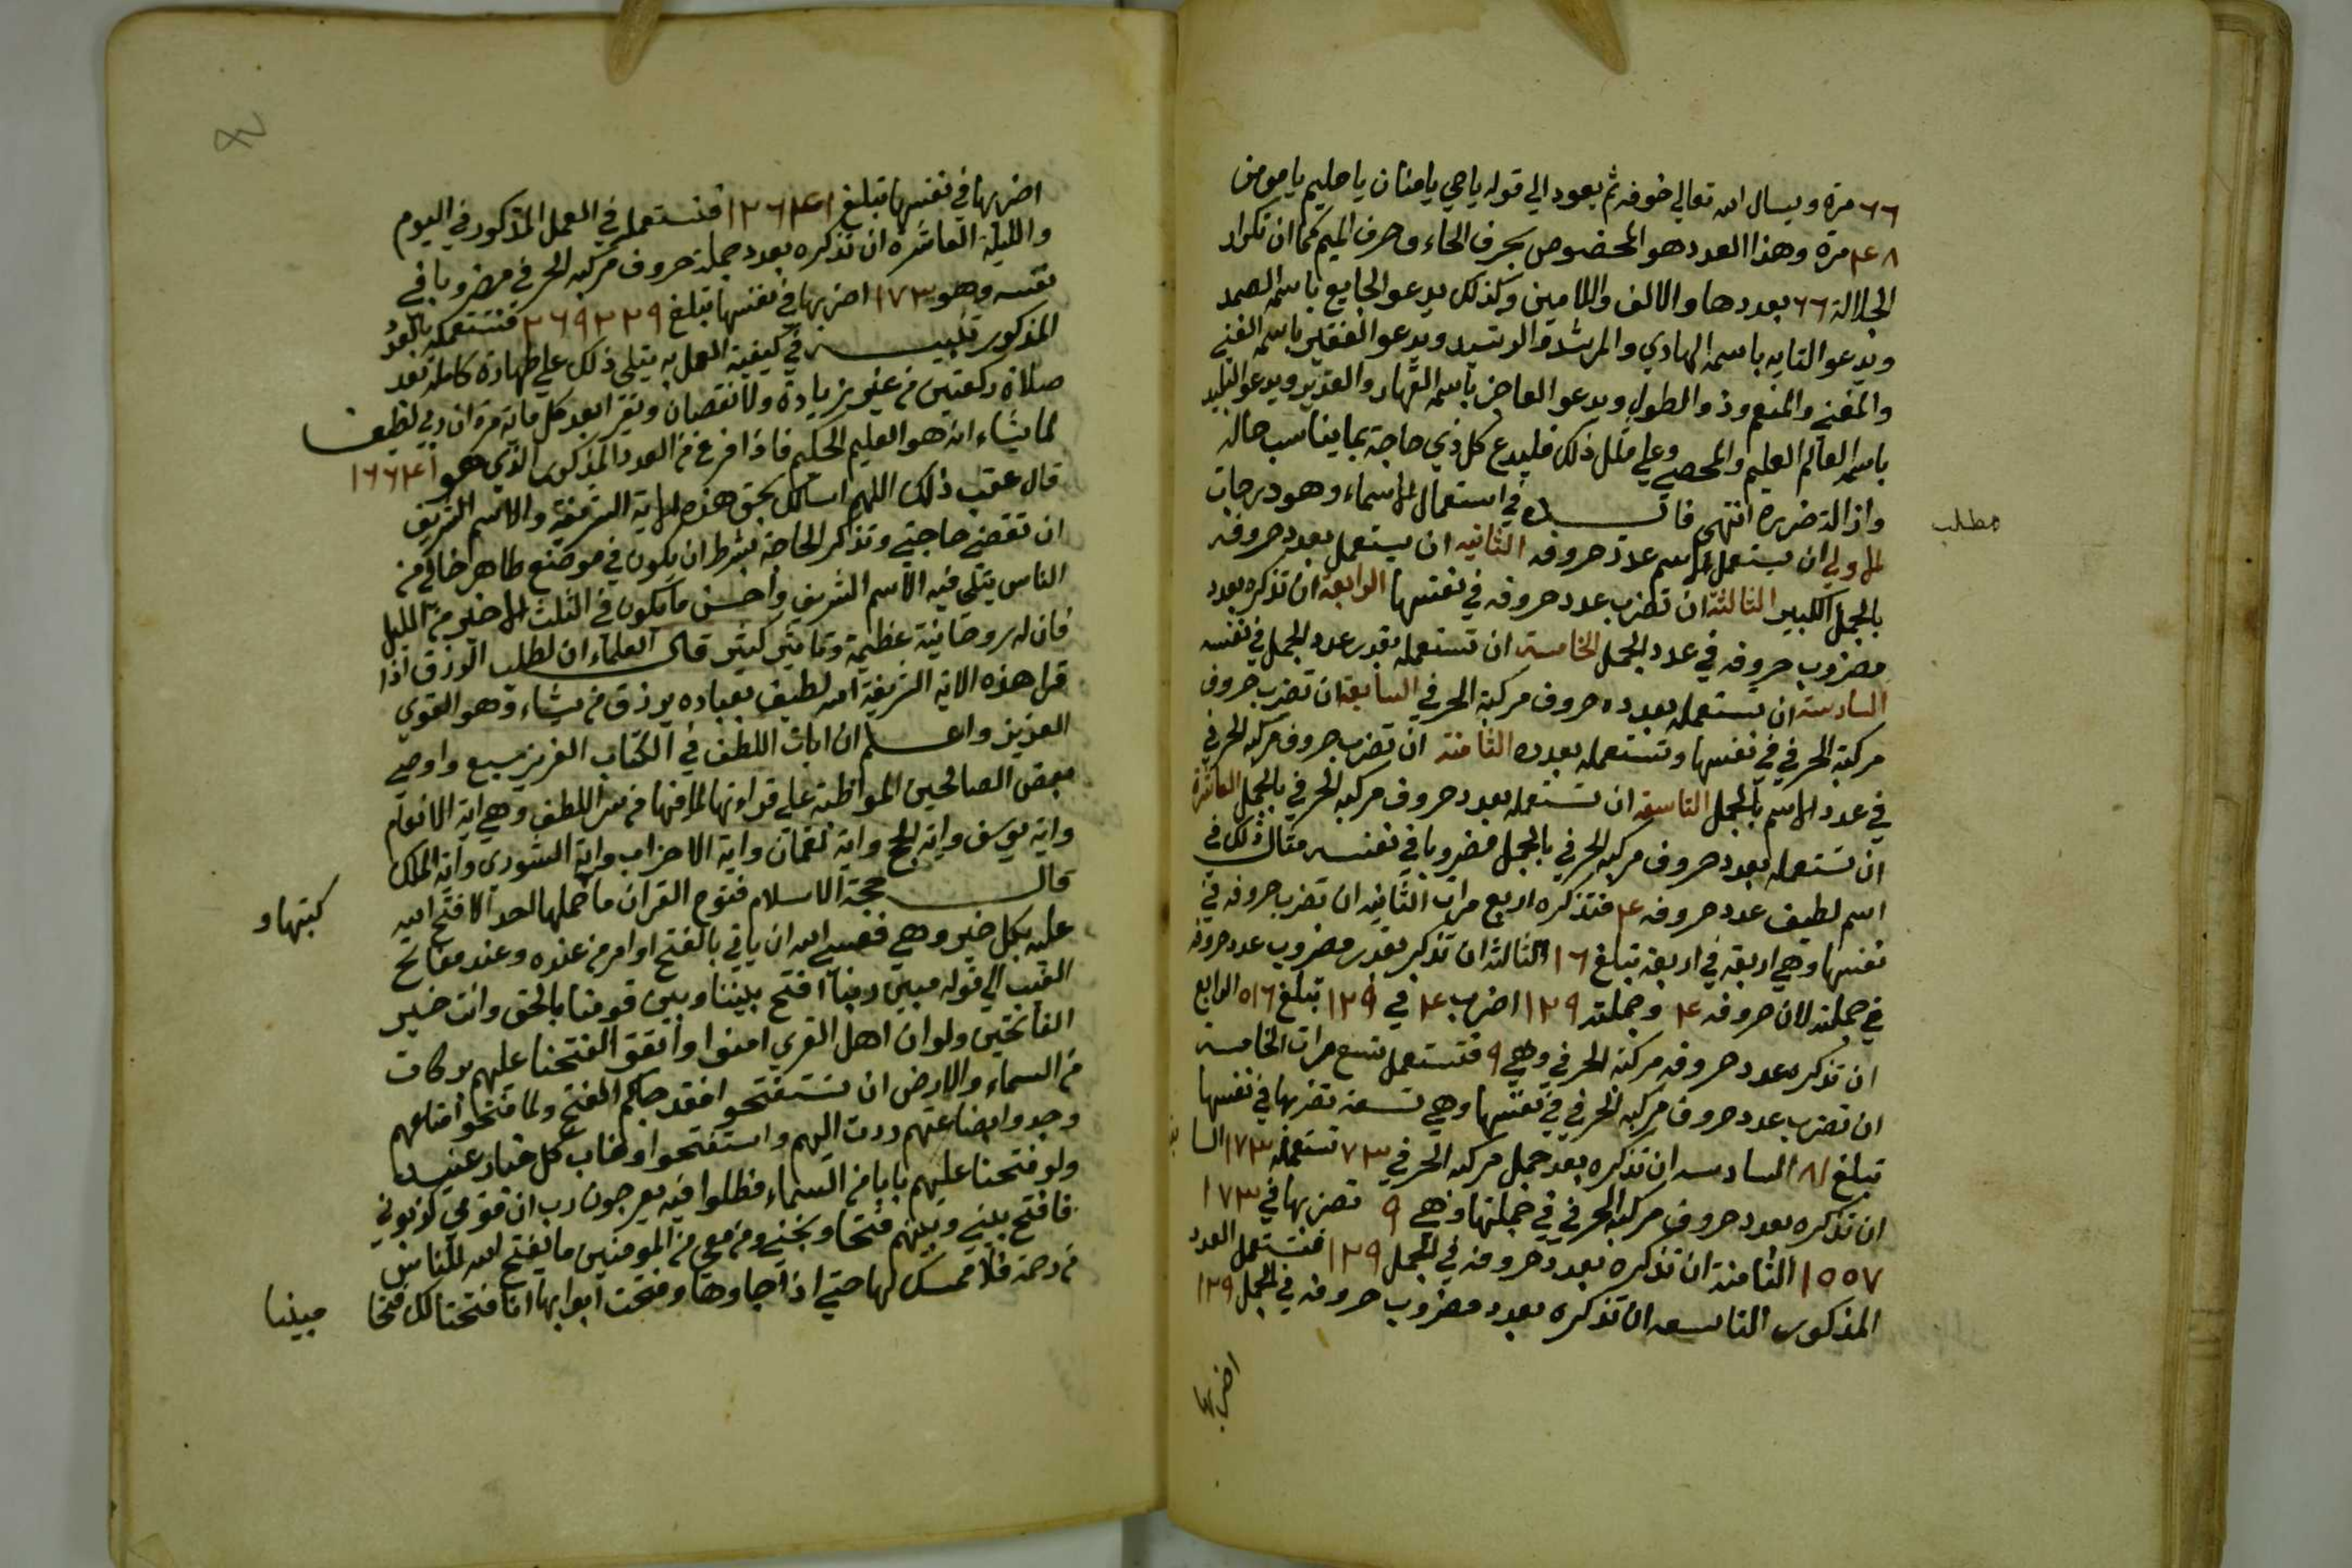 ٦٦ مرة ويسال الله تعالي خوفه ثم يعود الي قوله يا حي يا منان يا حليم يا مومن
١٤٨ مرة وهذا العدد هو المخصوص بحرف الحاء وحرف الميم كما ان تكرار
الجلالة ٦٦ بعددها والالف واللامين وكذلك يدعو الجايع باسمه الصمد
ويدعو التايه باسمه الهادي والمرشد والرشيد ويدعو الفقير باسمه الغني
والمغني والمنعم وذو الطول ويدعو العاجز باسمه القهار والقدير ويدعو البليد
باسمه العالم العليم والمحصي وعلي مثل ذلك فليدع كل ذي حاجة بما يناسب حاله
واذالة ضرره انتهي فائدة في استعمال الاسماء وهو درجات
مطلب
الاولي ان يستعمل الاسم عدد حروفه الثانيه ان يستعمل بعدد حروفه
بالجمل الكبير الثالثة ان تضرب عدد حروفه في نفسها الرابعة ان تذكره بعدد
مضروب حروفه في عدد الجمل الخامسة ان تستعمله بقدر عدد الجمل في نفسه
السادسة ان تستعمله بعدده حروف مركبة الحرفي السابعة ان تضرب حروف
مركبة الحرفي في نفسها وتستعمله بعدده الثامنة ان تضرب حروف مركبه الحرفي
في عدد الاسم بالجمل التاسعة ان تستعمله بعدد حروف مركبه الحرفي بالجمل العاشرة
ان تستعمله بعدد حروف مركبه الحرفي بالجمل مضروبا في نفسه مثال ذلك في
اسم لطيف عدد حروفه ٤ فتذكره اربع مرات الثانيه ان تضرب حروفه في
نفسها وهي اربعة في اربعة تبلغ ١٦ الثالثة ان تذكر بقدر مضروب عدد حروفه
في جملته لان حروفه ٤ وجملته ١٢٩ اضرب ٤ في ١٢٩ تبلغ ٥١٦ الرابع
ان تذكره عدد حروفه مركبة الحرفي وهي ٩ فتستعمل تسع مرات الخامسة
ان تضرب عدد حروف مركبه الحرفي في نفسها وهي تسعة تضربها في نفسها
تبلغ ٨١ السادسه ان تذكره بعد جمل مركبه الحرفي ١٧٣ تستعمله ١٧٣ السا
ان تذكره بعدد حروف مركبه الحرفي في جملتها وهي ٩ تضربها في ١٧٣
١٥٥٧ الثامنة ان تذكره بعدد حروفه في الجمل ١٢٩ فتستعمل العدد
المذكور التاسعه ان تذكره بعدد مضروب حروفه في الجمل ١٢٩
اضربها
اضربها في نفسها تبلغ ١٦٦٤١ فتستعمله في العمل المذكور في اليوم
والليلة العاشره ان تذكره بعدد جملة حروف مركبه الحرفي مضروبا في
نفسه وهو ١٧٣ اضربها في نفسها تبلغ ٢٦٩٢٢٩ فتستعمله بالعدد
المذكور تنبيه في كيفية العمل به يتلي ذلك علي طهارة كامله بعد
صلاة ركعتين من غير زيادة ولا نقصان ويقرا بعد كل مائة مرة ان ربي لطيف
لما يشاء انه هو العليم الحكيم فاذا فرغ من العدد المذكور الذي هو ١٦٦٤١
قال عقب ذلك اللهم اسالك بحق هذه الاية الشريفة والاسم الشريف
ان تقضي حاجتي وتذكر الحاجة بشرط ان يكون في موضع طاهر خالي من
الناس يتلي فيه الاسم الشريف واحسن ما يكون في الثلث الاخير من الليل
فان له روحانية عظيمة وتاثير كثير قال العلماء ان لطلب الرزق اذا
قرا هذه الاية الشريفة الله لطيف بعباده يرزق من يشاء وهو القوي
العزيز واعلم ان ايات اللطف في الكتاب العزيز سبع واوصي
بعض الصالحين المواظبة علي قراتها لما فيها من سر اللطف وهي اية الانعام
واية يوسف واية الحج واية لقمان واية الاحزاب واية الشوري واية الملك
قال حجة الاسلام فتوح القران ما حملها احد الا فتح الله
كتبها و
عليه بكل خير وهي فعسي الله ان ياتي بالفتح او امر من عنده وعنده مفاتح
الغيب الي قوله مبين ربنا افتح بيننا وبين قومنا بالحق وانت خير
الفاتحين ولو ان اهل القري امنوا واتقو الفتحنا عليهم بركات
من السماء والارض ان تستفتحو افقد جاكم الفتح ولما فتحوا متاعهم
وجدوا بضاعتهم ردت اليهم واستفتحوا وخاب كل جبار عنيد
ولو فتحنا عليهم بابا من السماء فظلوا فيه يعرجون رب ان قومي كذبوني
فافتح بيني وبينهم فتحا ونجني ومن معي من المومنين ما يفتح الله للناس
من رحمة فلا ممسك لها حتي اذا جاوها وفتحت ابوابها انا فتحنا لك فتحا مبينا